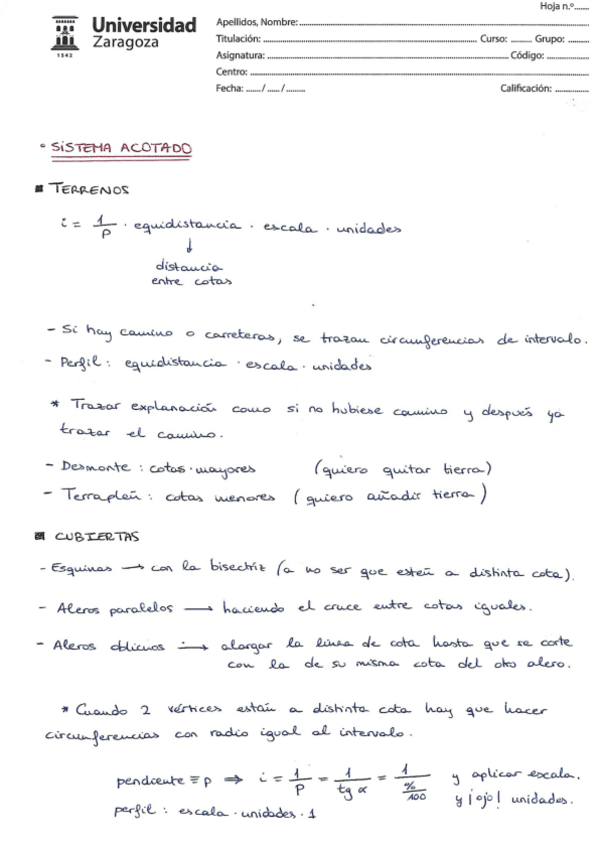 Hoja n.º
Universidad
Zaragoza
1542
Apellidos, Nombre:
Titulación: Curso: Grupo:
Asignatura: Código:
Centro:
Fecha: / /
Calificación:
• SISTEMA ACOTADO
■ TERRENOS
i = 1/P · equidistancia · escala · unidades
↓
distancia
entre cotas
- Si hay camino o carreteras, se trazan circunferencias de intervalo.
- Perfil: equidistancia · escala · unidades
* Trazar explanación como si no hubiese camino y después ya
trazar el camino.
- Desmonte : cotas · mayores (quiero quitar tierra)
- Terraplén : cotas menores (quiero añadir tierra)
■ CUBIERTAS
- Esquinas → con la bisectriz (a no ser que estén a distinta cota).
- Aleros paralelos → haciendo el cruce entre cotas iguales.
- Aleros oblicuos → alargar la línea de cota hasta que se corte
con la de su misma cota del otro alero.
* Cuando 2 vértices están a distinta cota hay que hacer
circunferencias con radio igual al intervalo.
pendiente ≡ p ⇒ i = 1/P = 1/tg α = 1/(%/100) y aplicar escala.
y ¡ojo! unidades.
perfil : escala · unidades · 1